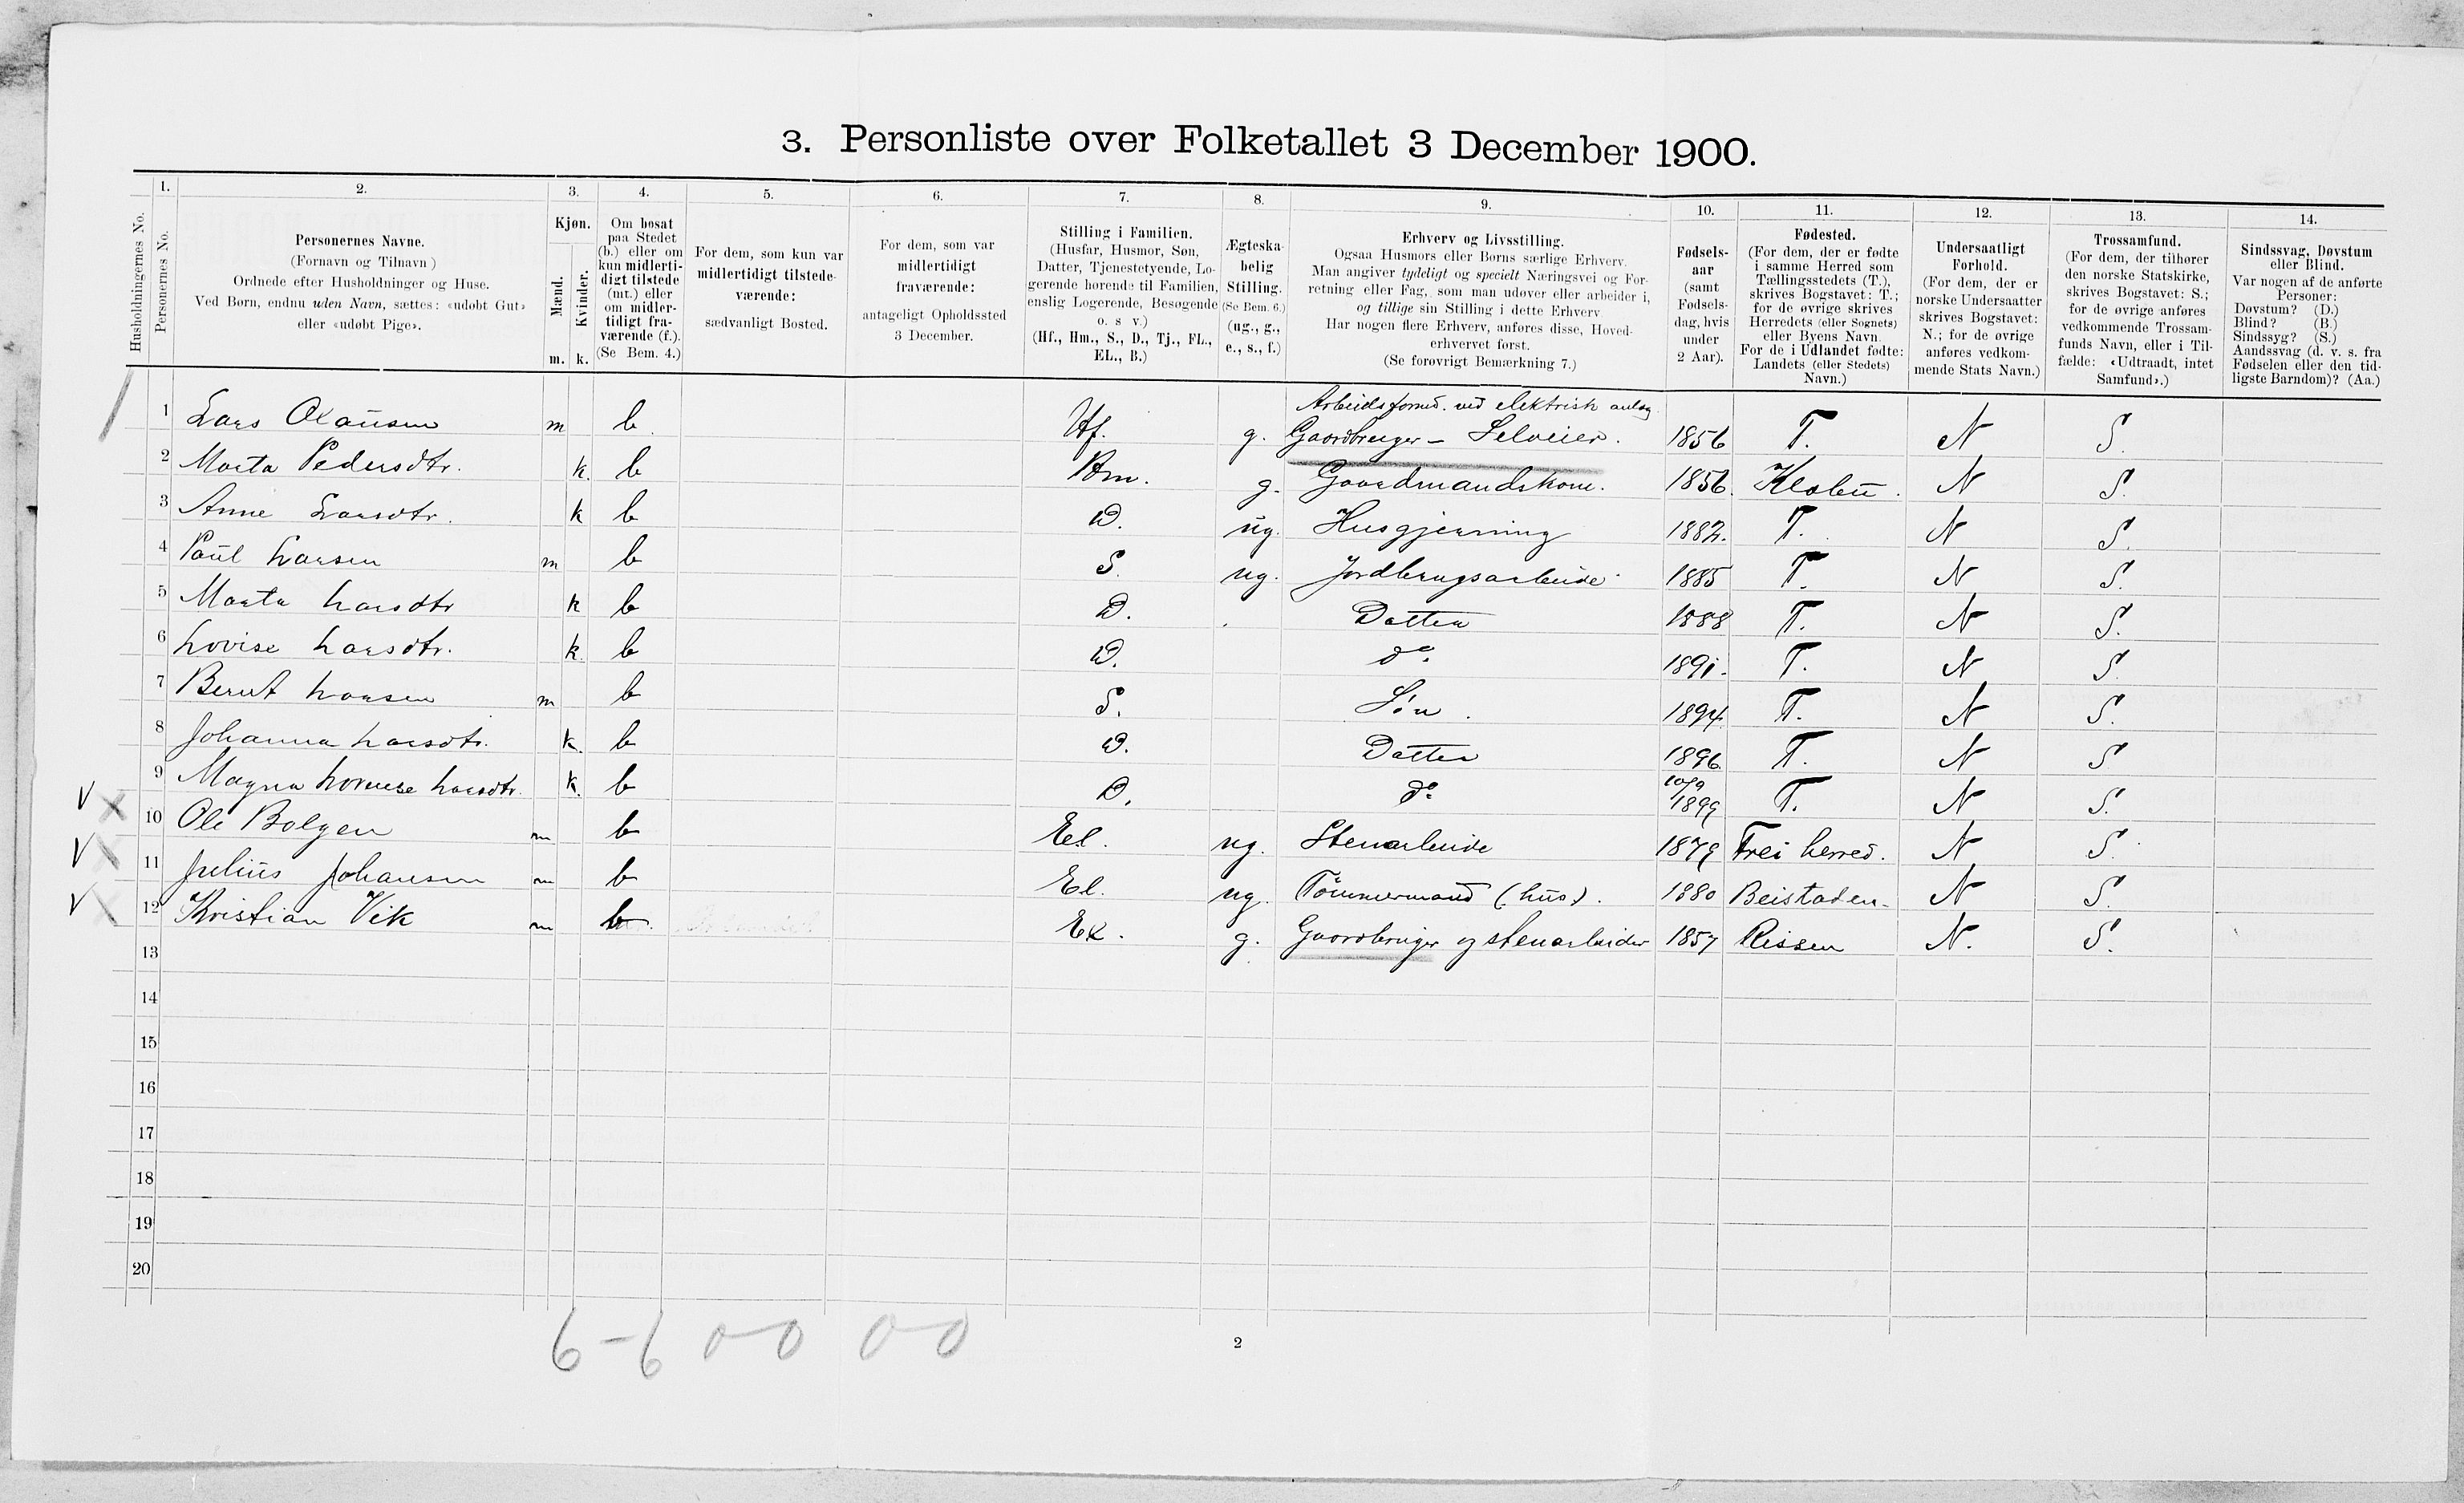 3. Personliste over Folketallet 3 December 1900.
Husholdningernes No.
1.
Personernes No.
2.
Personernes Navne.
(Fornavn og Tilnavn)
Ordnede efter Husholdninger og Huse.
Ved Børn, endnu uden Navn, sættes: «udøbt Gut»
eller «udøbt Pige».
3.
Kjøn.
Mænd.
Kvinder.
m. k.
4.
Om bosat
paa Stedet
(b.) eller om
kun midlerti-
digt tilstede
(mt.) eller
om midler-
tidigt fra-
værende (f.).
(Se Bem. 4.)
5.
For dem, som kun var
midlertidigt tilstede-
værende:
sædvanligt Bosted.
6.
For dem, som var
midlertidigt
fraværende:
antageligt Opholdssted
3 December.
7.
Stilling i Familien.
(Husfar, Husmor, Søn,
Datter, Tjenestetyende, Lo-
gerende hørende til Familien,
enslig Logerende, Besøgende
o. s v.)
(Hf., Hm., S., D., Tj., FL.,
EL., B.)
8.
Ægteska-
belig
Stilling.
(Se Bem. 6.)
(ug., g.,
e., s., f.)
9.
Erhverv og Livsstilling.
Ogsaa Husmors eller Børns særlige Erhverv.
Man angiver tydeligt og specielt Næringsvei og For-
retning eller Fag, som man udøver eller arbeider i,
og tillige sin Stilling i dette Erhverv
Har nogen flere Erhverv, anføres disse, Hoved-
erhvervet først.
(Se forøvrigt Bemærkning 7.)
10.
Fødsels-
aar
(samt
Fødsels-
dag, hvis
under
2 Aar).
11.
Fødested.
(For dem, der er fødte
i samme Herred som
Tællingsstedets (T.),
skrives Bogstavet: T.;
for de øvrige skrives
Herredets (eller Sognets)
eller Byens Navn.
For de i Udlandet fødte:
Landets (eller Stedets)
Navn.)
12.
Undersaatligt
Forhold.
(For dem, der er
norske Undersaatter
skrives Bogstavet:
N.; for de øvrige
anføres vedkom-
mende Stats Navn.)
13.
Trossamfund.
(For dem, der tilhører
den norske Statskirke,
skrives Bogstavet: S.;
for de øvrige anføres
vedkommende Trossam-
funds Navn, eller i Til-
fælde: «Udtraadt, intet
Samfund».)
14.
Sindssvag, Døvstum
eller Blind.
Var nogen af de anførte
Personer:
Døvstum? (D.)
Blind? (B.)
Sindssyg? (S.)
Aandssvag (d. v. s. fra
Fødselen eller den tid-
ligste Barndom)? (Aa.)
Arbeidsformd. ved elektrisk anlæg
1 Lars Olausen m b. Hf. g. Gaardbruger – Selveier. 1856 T. N S.
2 Marta Pedersdtr. k. b Hm. g. Gaardmandskone. 1856. Klæbu. N S.
3 Anne Larsdtr. k b D. ug. Husgjerning 1882. T. N S.
4 Paul Larsen m b S. ug. Jordbrugsarbeide 1885 T. N S.
5 Marta Larsdtr k b D. Datter 1888 T. N S.
6 Lovise Larsdtr. k. b D. do. 1891. T. N S.
7 Bernt Larsen m b S. Søn. 1894. T. N S.
8 Johanna Larsdtr. k. b D. Datter 1896. T. N S
9 Magna Lovise Larsdtr. k. b D. do. 10/9 1899 T. N S.
10 Ole Bolgen m b El. ug. Stenarbeide 1879 Frei herred. N S.
11 Julius Johansen m b El. ug. Tømmermand (hus). 1880 Beistaden. N S.
12 Kristian Vik m b. El. g. Gaardbruger og stenarbeider 1857 Rissen N. S.
13
14
15
16
17
18
19
20
6-6 0-0 0-0
2